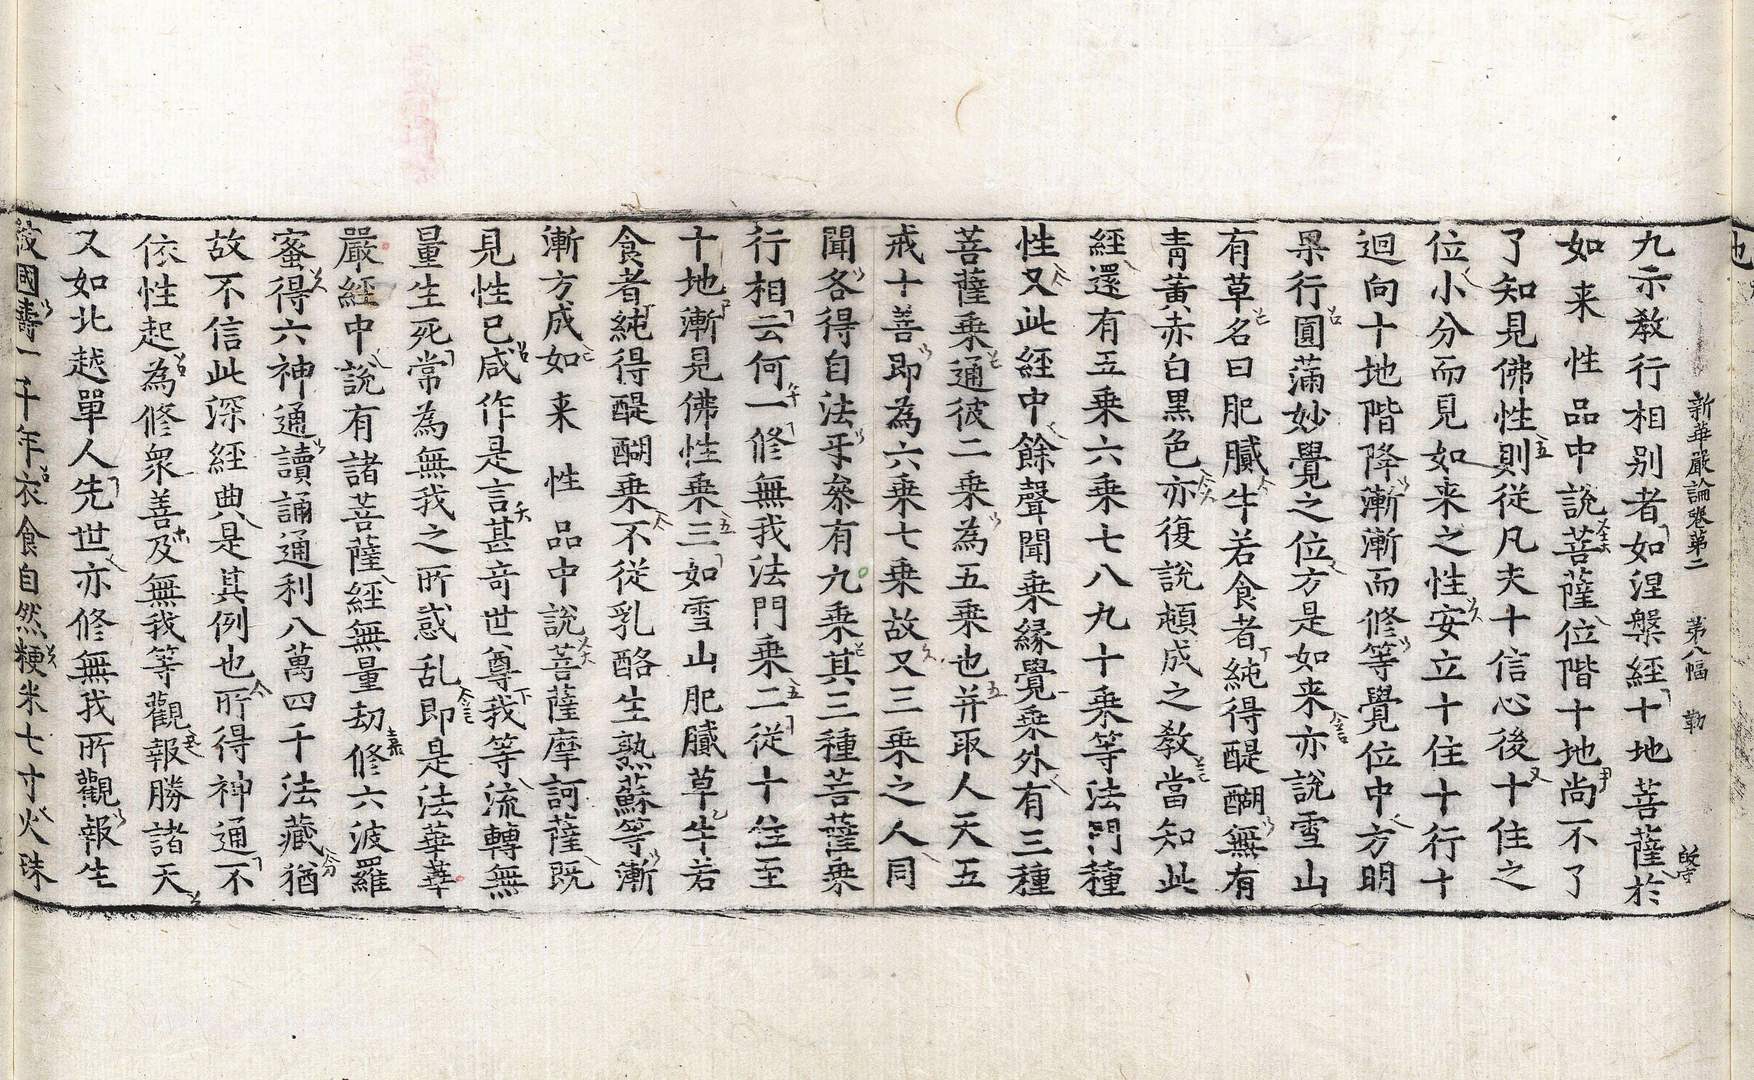 新華嚴論卷第二　第八幅　勤
九示教行相别者如涅槃經十地菩薩於
如来性品中說菩薩位階十地尚不了
了知見佛性則從凡夫十信心後十住之
位小分而見如来之性安立十住十行十
迴向十地階降漸漸而修等覺位中方明
果行圓滿妙覺之位方是如来亦說雪山
有草名曰肥膩牛若食者純得醍醐無有
青黃赤白黑色亦復說頓成之教當知此
經還有五乗六乗七八九十乗等法門種
性又此經中餘聲聞乗緣覺乗外有三種
菩薩乗通彼二乗為五乗也并取人天五
戒十善即為六乗七乗故又三乗之人同
聞各得自法乎叅有九乗其三種菩薩乗
行相云何一修無我法門乗二從十住至
十地漸見佛性乗三如雪山肥膩草牛若
食者純得醍醐乗不從乳酪生熟蘇等漸
漸方成如来性品中說菩薩摩訶薩既
見性已咸作是言甚竒世尊我等流轉無
量生死常為無我之所惑乱即是法華華
嚴經中說有諸菩薩經無量劫修六波羅
蜜得六神通讀誦通利八萬四千法藏猶
故不信此深經典是其例也所得神通不
依性起為修衆善及無我等觀報勝諸天
又如北越單人先世亦修無我所觀報生
彼國壽一千年衣食自然粳米七寸火珠